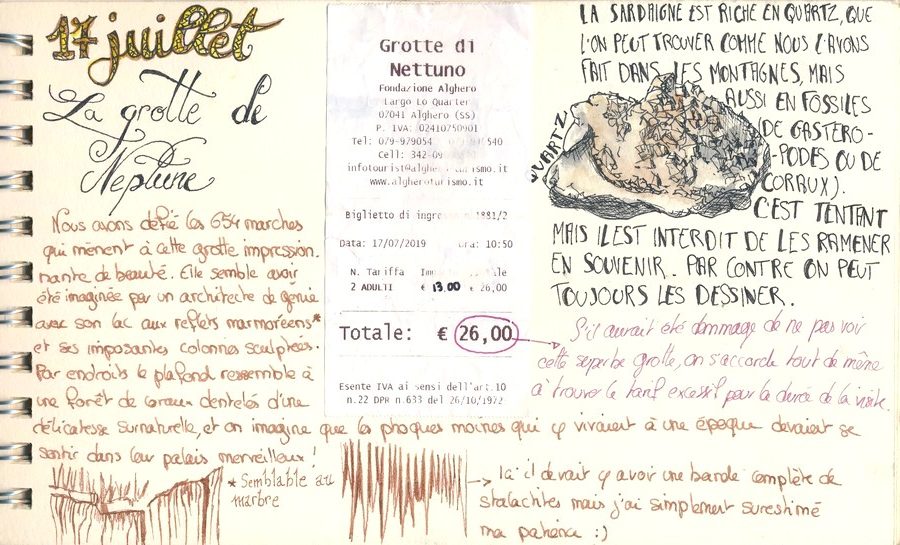 17 juillet
La grotte de
Neptune
Nous avons défié les 654 marches
qui mènent à cette grotte impression-
nante de beauté. Elle semble avoir
été imaginée par un architecte de génie
avec son lac aux reflets marmoréens*
et ses imposantes colonnes sculptées.
Par endroits le plafond ressemble à
une forêt de coraux dentelés d'une
délicatesse surnaturelle, et on imagine que les phoques moines qui y vivaient à une époque devaient se
sentir dans leur palais merveilleux !
* Semblable au
marbre
Grotte di
Nettuno
Fondazione Alghero
Largo Lo Quarter
07041 Alghero (SS)
P. IVA: 02410750901
Tel: 079-979054 540
Cell: 342-09
infotourist@algheroturismo.it
www.algheroturismo.it
Biglietto di ingresso n.1881/2
Data: 17/07/2019 ora: 10:50
N. Tariffa
2 ADULTI € 13,00 € 26,00
Totale: € 26,00
Esente IVA ai sensi dell'art.10
n.22 DPR n.633 del 26/10/1972
LA SARDAIGNE EST RICHE EN QUARTZ, QUE
L'ON PEUT TROUVER COMME NOUS L'AVONS
FAIT DANS LES MONTAGNES, MAIS
AUSSI EN FOSSILES
(DE GASTERO-
PODES OU DE
CORAUX).
C'EST TENTANT
MAIS IL EST INTERDIT DE LES RAMENER
EN SOUVENIR. PAR CONTRE ON PEUT
TOUJOURS LES DESSINER.
QUARTZ
S'il aurait été dommage de ne pas voir
cette superbe grotte, on s'accorde tout de même
à trouver le tarif excessif pour la durée de la visite.
Là il devait y avoir une bande complète de
stalactites mais j'ai simplement surestimé
ma patience :)